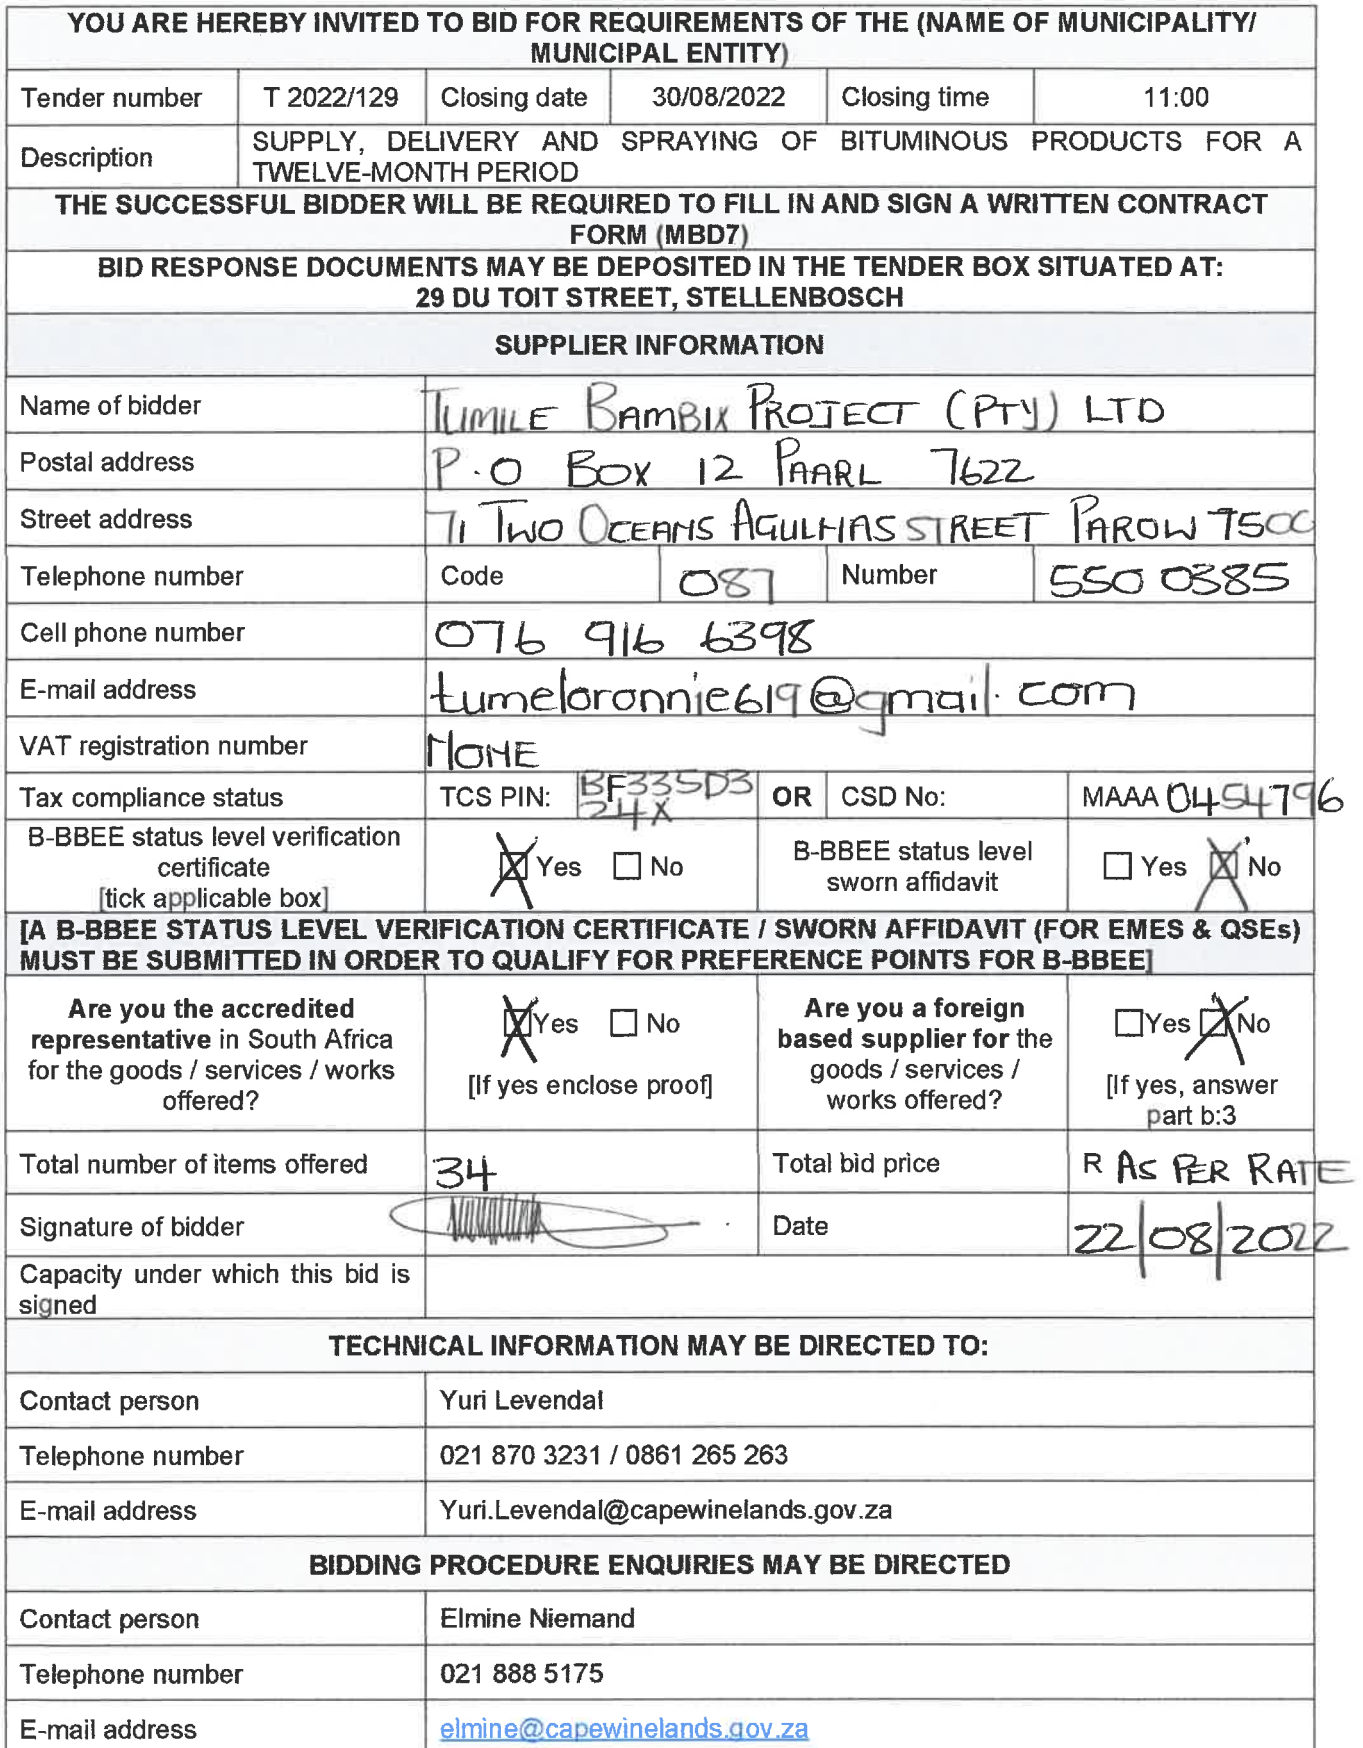 YOU ARE HEREBY INVITED TO BID FOR REQUIREMENTS OF THE (NAME OF MUNICIPALITY/
MUNICIPAL ENTITY)
Tender number T 2022/129 Closing date 30/08/2022 Closing time 11:00
Description SUPPLY, DELIVERY AND SPRAYING OF BITUMINOUS PRODUCTS FOR A
TWELVE-MONTH PERIOD
THE SUCCESSFUL BIDDER WILL BE REQUIRED TO FILL IN AND SIGN A WRITTEN CONTRACT
FORM (MBD7)
BID RESPONSE DOCUMENTS MAY BE DEPOSITED IN THE TENDER BOX SITUATED AT:
29 DU TOIT STREET, STELLENBOSCH
SUPPLIER INFORMATION
Name of bidder TUMILE BAMBIX PROJECT (PTY) LTD
Postal address P.O BOX 12 PAARL 7622
Street address 71 TWO OCEANS AGULHAS STREET PAROW 7500
Telephone number Code 087 Number 550 0385
Cell phone number 076 916 6398
E-mail address tumeloronnie619@gmail.com
VAT registration number NONE
Tax compliance status TCS PIN: BF335D3
24X OR CSD No: MAAA 0454796
B-BBEE status level verification
certificate
[tick applicable box] Yes No B-BBEE status level
sworn affidavit Yes No
[A B-BBEE STATUS LEVEL VERIFICATION CERTIFICATE / SWORN AFFIDAVIT (FOR EMES & QSEs)
MUST BE SUBMITTED IN ORDER TO QUALIFY FOR PREFERENCE POINTS FOR B-BBEE]
Are you the accredited
representative in South Africa
for the goods / services / works
offered?
Yes No
[If yes enclose proof]
Are you a foreign
based supplier for the
goods / services /
works offered?
Yes No
[If yes, answer
part b:3
Total number of items offered 34 Total bid price R AS PER RATE
Signature of bidder Date 22/08/2022
Capacity under which this bid is
signed
TECHNICAL INFORMATION MAY BE DIRECTED TO:
Contact person Yuri Levendal
Telephone number 021 870 3231 / 0861 265 263
E-mail address Yuri.Levendal@capewinelands.gov.za
BIDDING PROCEDURE ENQUIRIES MAY BE DIRECTED
Contact person Elmine Niemand
Telephone number 021 888 5175
E-mail address elmine@capewinelands.gov.za